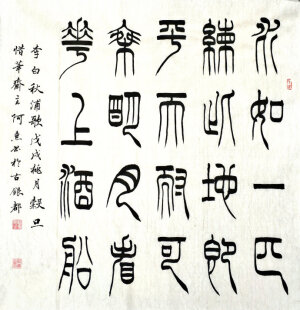 水如一匹
練此地即
平天耐可
乘明月看
華上酒船
李白秋浦歌戊戌桃月穀旦
惜華齋主阿魚書於古銀都